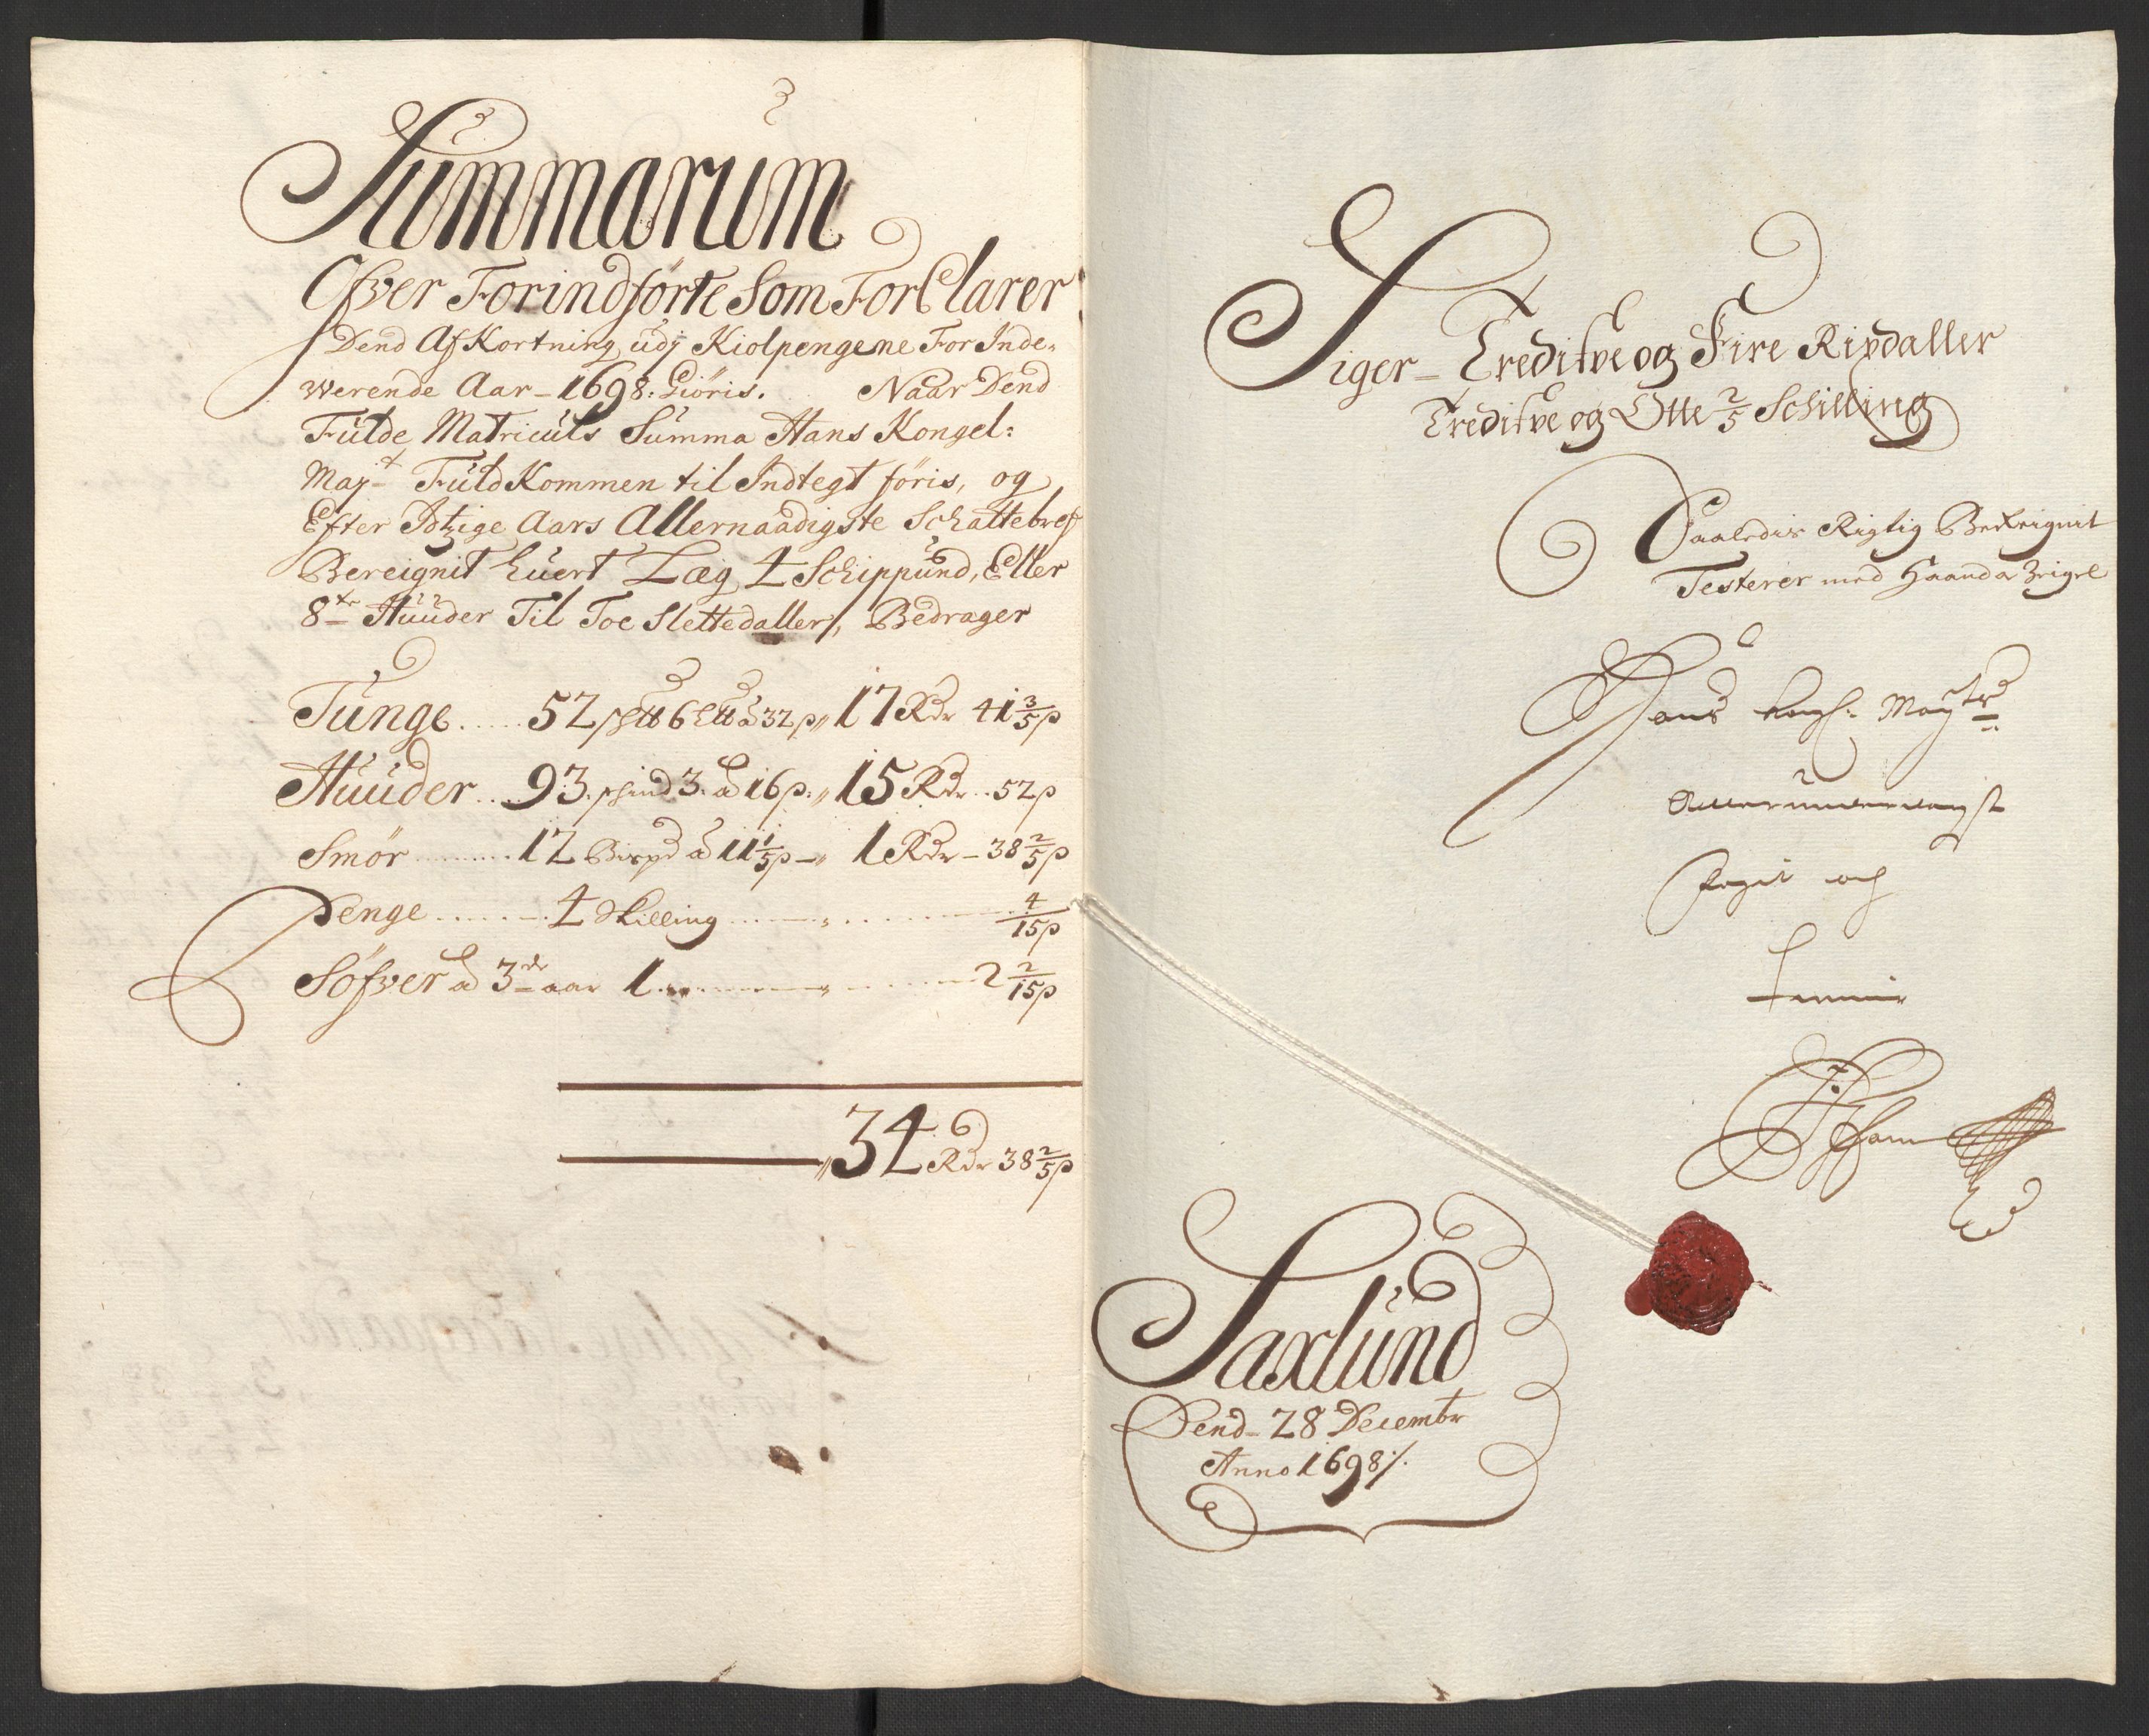 Summarum
Ofver Forindførte Som ForClarer
Dend AfKortning udj Kiolpengene For Inde-
werende Aar - 1698: Giöris. Naar Dend
Fulde Matriculs Summa Hans Kongel:
Mayt Fuld Kommen til Indtegt föris, og
Efter Idtzige Aars Allernaadigste Schattebref
Bereignit huert Læg 1 Schippund, Eller
8te Huuder Til Toe Slettedaller/, Bedrager
Tunge ..... 52 6 a 32 p 17 Rdr 41 3/5 p
Huuder .. 93. 3. a 16 p: 15 Rdr .. 52 p
Smör ........ 12 a 11 1/5 p - 1 Rdr - 38 2/5 p
Penge ........ 4 Skilling ........ 4/15 p
Söfver a 3de aar 1 ........ 2 2/15 p
34 Rdr 38 2/5 p
Siger - Tredifve og Fire Rixdaller
Tredifve og Otte 2/5 Schilling
Saaledis Rigtig Bereignit
Testerer med Haand & Zeigel
Hans Kongl: Maytz
Allerunderdanigst
Fogit och
Tienner
Saxlund
Dend - 28 Decembr
Anno 1698/.